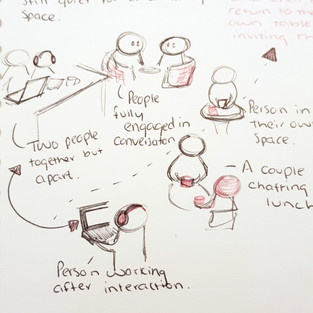 still quiet for
Space.
return to me
own table
inviting th
People
fully
engaged in
conversation
Person in
their own
Space.
Two people
together but
apart.
A couple
chatting
lunch
Person working
after interaction.